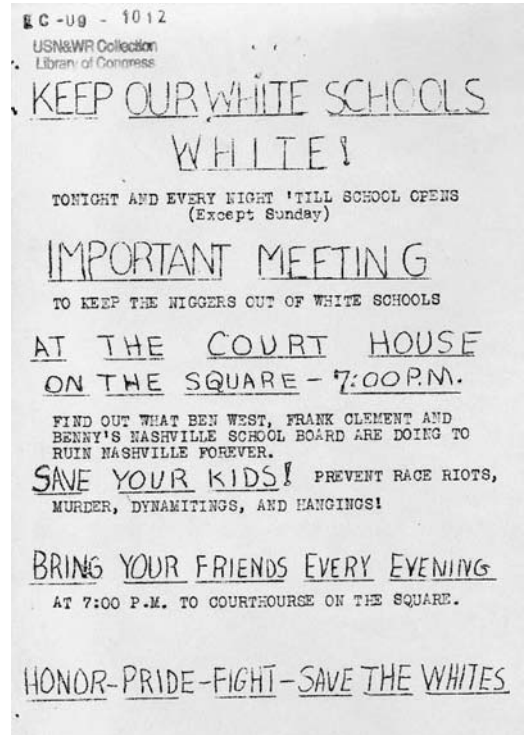 EC-Ug - 1012
USN&WR Collection
Library of Congress
KEEP OUR WHITE SCHOOLS
WHITE!
TONIGHT AND EVERY NIGHT 'TILL SCHOOL OPENS
(Except Sunday)
IMPORTANT MEETING
TO KEEP THE NIGGERS OUT OF WHITE SCHOOLS
AT THE COURT HOUSE
ON THE SQUARE - 7:00 P.M.
FIND OUT WHAT BEN WEST, FRANK CLEMENT AND
BENNY'S NASHVILLE SCHOOL BOARD ARE DOING TO
RUIN NASHVILLE FOREVER.
SAVE YOUR KIDS! PREVENT RACE RIOTS,
MURDER, DYNAMITINGS, AND HANGINGS!
BRING YOUR FRIENDS EVERY EVENING
AT 7:00 P.M. TO COURTHOURSE ON THE SQUARE.
HONOR-PRIDE-FIGHT-SAVE THE WHITES